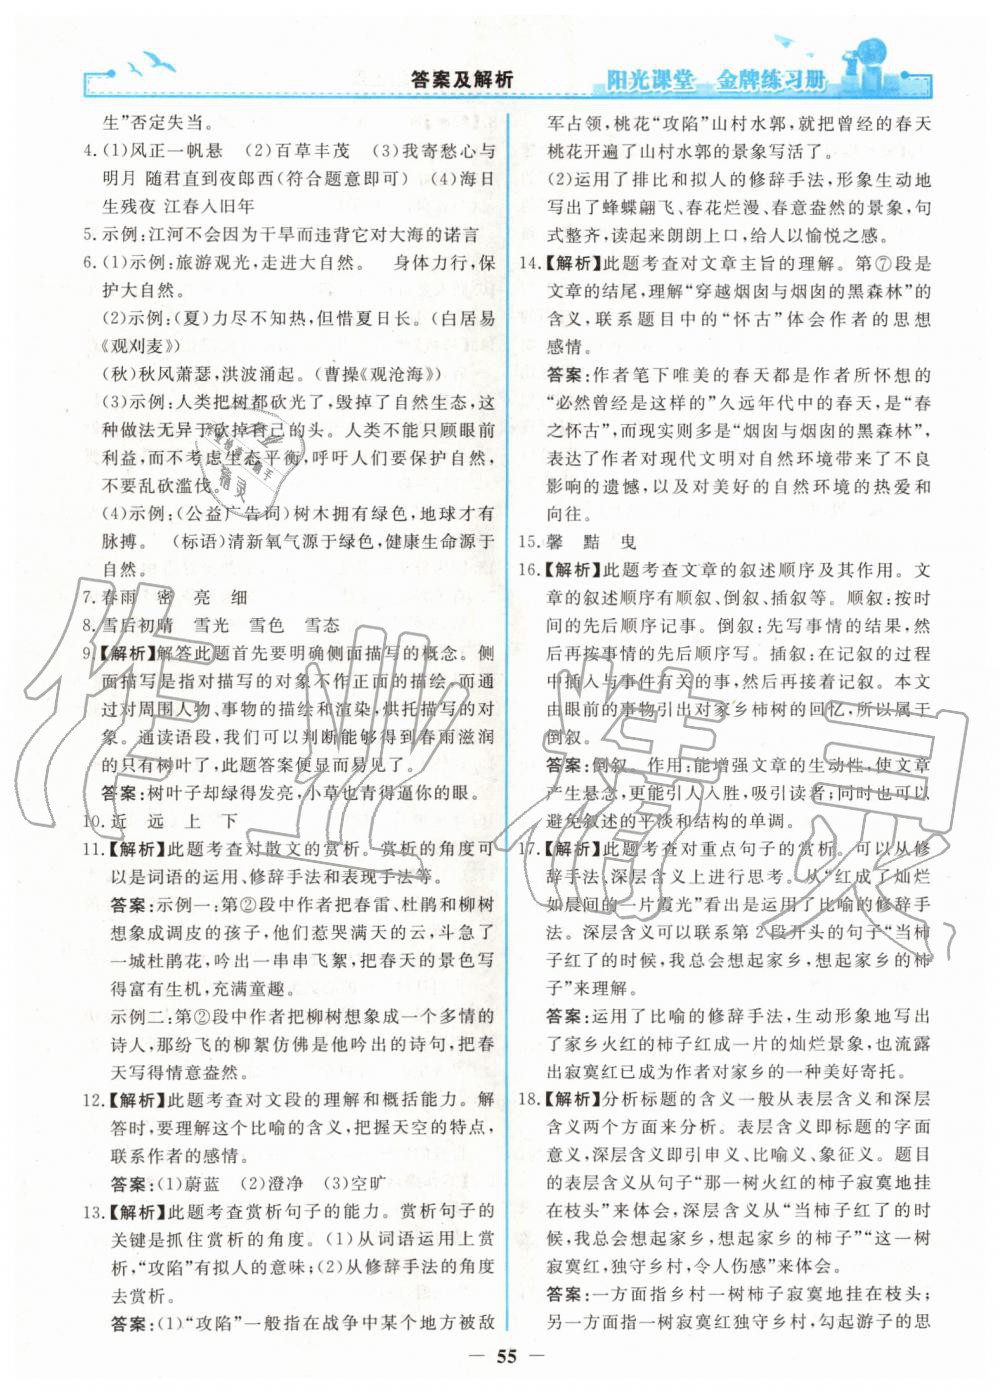 答案及解析
阳光课堂 金牌练习册
生”否定失当。
4.(1)风正一帆悬 (2)百草丰茂 (3)我寄愁心与
明月 随君直到夜郎西(符合题意即可) (4)海日
生残夜 江春入旧年
5.示例:江河不会因为干旱而违背它对大海的诺言
6.(1)示例:旅游观光,走进大自然。 身体力行,保
护大自然。
(2)示例:(夏)力尽不知热,但惜夏日长。(白居易
《观刈麦》)
(秋)秋风萧瑟,洪波涌起。(曹操《观沧海》)
(3)示例:人类把树都砍光了,毁掉了自然生态,这
种做法无异于砍掉自己的头。人类不能只顾眼前
利益,而不考虑生态平衡,呼吁人们要保护自然,
不要乱砍滥伐。
(4)示例:(公益广告词)树木拥有绿色,地球才有
脉搏。 (标语)清新氧气源于绿色,健康生命源于
自然。
7.春雨 密 亮 细
8.雪后初晴 雪光 雪色 雪态
9.【解析】解答此题首先要明确侧面描写的概念。侧
面描写是指对描写的对象不作正面的描绘,而通
过对周围人物、事物的描绘和渲染,烘托描写的对
象。通读语段,我们可以判断能够得到春雨滋润
的只有树叶了,此题答案便显而易见了。
答案:树叶子却绿得发亮,小草也青得逼你的眼。
10.近 远 上 下
11.【解析】此题考查对散文的赏析。赏析的角度可
以是词语的运用、修辞手法和表现手法等。
答案:示例一:第②段中作者把春雷、杜鹃和柳树
想象成调皮的孩子,他们惹哭满天的云,斗急了
一城杜鹃花,吟出一串串飞絮,把春天的景色写
得富有生机,充满童趣。
示例二:第②段中作者把柳树想象成一个多情的
诗人,那纷飞的柳絮仿佛是他吟出的诗句,把春
天写得情意盎然。
12.【解析】此题考查对文段的理解和概括能力。解
答时,要理解这个比喻的含义,把握天空的特点,
联系作者的感情。
答案:(1)蔚蓝 (2)澄净 (3)空旷
13.【解析】此题考查赏析句子的能力。赏析句子的
关键是抓住赏析的角度。(1)从词语运用上赏
析,“攻陷”有拟人的意味;(2)从修辞手法的角度
去赏析。
答案:(1)“攻陷”一般指在战争中某个地方被敌
军占领,桃花“攻陷”山村水郭,就把曾经的春天
桃花开遍了山村水郭的景象写活了。
(2)运用了排比和拟人的修辞手法,形象生动地
写出了蜂蝶翩飞、春花烂漫、春意盎然的景象,句
式整齐,读起来朗朗上口,给人以愉悦之感。
14.【解析】此题考查对文章主旨的理解。第⑦段是
文章的结尾,理解“穿越烟囱与烟囱的黑森林”的
含义,联系题目中的“怀古”体会作者的思想
感情。
答案:作者笔下唯美的春天都是作者所怀想的
“必然曾经是这样的”久远年代中的春天,是“春
之怀古”,而现实则多是“烟囱与烟囱的黑森林”,
表达了作者对现代文明对自然环境带来了不良
影响的遗憾,以及对美好的自然环境的热爱和
向往。
15.馨 黠 曳
16.【解析】此题考查文章的叙述顺序及其作用。文
章的叙述顺序有顺叙、倒叙、插叙等。顺叙:按时
间的先后顺序记事。倒叙:先写事情的结果,然
后再按事情的先后顺序写。插叙:在记叙的过程
中插入与事件有关的事,然后再接着记叙。本文
由眼前的事物引出对家乡柿树的回忆,所以属于
倒叙。
答案:倒叙。作用:能增强文章的生动性,使文章
产生悬念,更能引人入胜,吸引读者;同时也可以
避免叙述的平淡和结构的单调。
17.【解析】此题考查对重点句子的赏析。可以从修
辞手法、深层含义上进行思考。从“红成了灿烂
如晨间的一片霞光”看出是运用了比喻的修辞手
法。深层含义可以联系第2段开头的句子“当柿
子红了的时候,我总会想起家乡,想起家乡的柿
子”来理解。
答案:运用了比喻的修辞手法,生动形象地写出
了家乡火红的柿子红成一片的灿烂景象,也流露
出寂寞红已成为作者对家乡的一种美好寄托。
18.【解析】分析标题的含义一般从表层含义和深层
含义两个方面来分析。表层含义即标题的字面
意义,深层含义即引申义、比喻义、象征义。题目
的表层含义从句子“那一树火红的柿子寂寞地挂
在枝头”来体会。深层含义从句子“当柿子红了的时
候,我总会想起家乡,想起家乡的柿子”“这一树
寂寞红,独守乡村,令人伤感”来体会。
答案:一方面指乡村一树柿子寂寞地挂在枝头;
另一方面指一树柿子寂寞红独守乡村,勾起游子的思
55
作业精灵